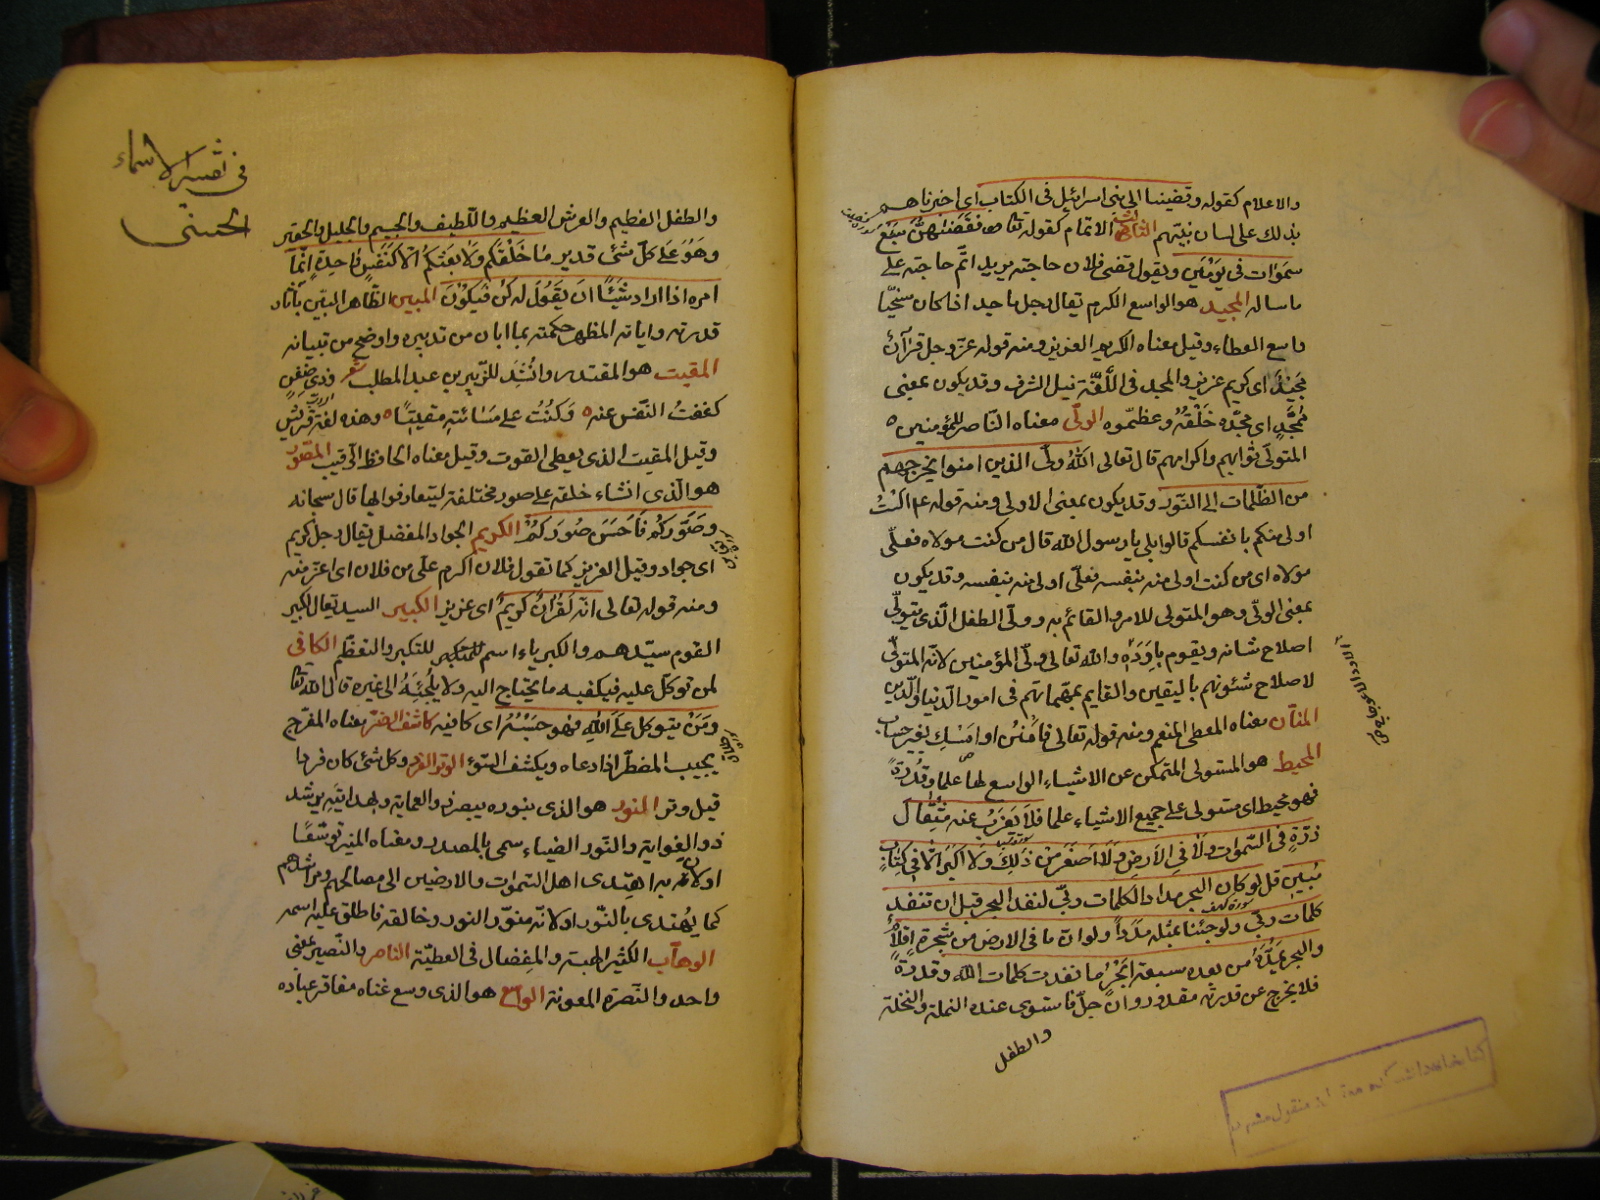 والاعلام كقوله وقضينا الى بنى اسرائيل فى الكتاب اى اخبرناهم
بذلك على لسان نبيّهم الثالث الاتمام كقوله تعا فقضٰهنّ سبع
سموات فى يومين ويقول قضى فلان حاجته يريد اتمّ حاجته على
ما ساله المجيد هو الواسع الكرم يقال رجل ماجد اذا كان سخيّا
واسع العطاء وقيل معناه الكريم العزيز ومنه قوله عزّ وجل قرآن
مجيد اى كريم عزيز والمجد فى اللّغة نيل الشرف وقد يكون بمعنى
مُمجّد اى مجّده خلقه وعظّموه الولىّ معناه النّاصر للمؤمنين
المتولّى ثوابهم واكرامهم قال تعالى الله ولىّ الذين امنوا يخرجهم
من الظّلمات الى النّور وقد يكون بمعنى الاولى ومنه قوله ع الست
اولى منكم بانفسكم قالوا بلى يا رسول الله قال من كنت مولاه فعلىّ
مولاه اى من كنت اولى منه بنفسه فعلىّ اولى منه بنفسه وقد يكون
بمعنى الولىّ وهو المتولى للامر والقائم به وولىّ الطفل الّذى يتولّى
اصلاح شانه ويقوم باوده والله تعالى ولىّ المؤمنين لانّه المتولّى
لاصلاح شئونهم باليقين والقايم بمهمّاتهم فى امور الدّنيا والدّين
المنّان معناه المعطى المنعم ومنه قوله تعالى فامنن او امسك بغير حساب
المحيط هو المستولى المتمكن عن الاشياء الواسع لها علما وقدرة
فهو محيط اى مستولى على جميع الاشياء علما فلا يعزب عنه مثقال
ذرّة فى السّموات ولا فى الارض ولا اصغر من ذلك ولا اكبر الا فى كتاب
مبين قل لو كان البحر مدادا لكلمات ربّى لنفد البحر قبل ان تنفد
سورة كهف
كلمات ربّى ولو جئنا بمثله مددا ولو انّ ما فى الارض من شجرة اقلام
والبحر يمدّه من بعده سبعة ابحر ما نفدت كلمات الله وقدرة
فلا يخرج عن قدرته مقدور وان جلّ فاستوى عنده النملة والنخلة
والطفل
فى تفسير الاسماء
الحسنى
والطفل الفطيم والعرش العظيم واللّطيف والجسيم والجليل والحقير
وهو على كلّ شئ قدير ما خلقكم ولا بعثكم الا كنفس واحدة انّما
امره اذا اراد شيئا ان يقول له كن فيكون المبين الظّاهر البيّن بآثار
قدرته وآياته المظهر حكمته بما ابان من تدبيره واوضح من تبيانه
المقيت هو المقتدر وانشد للزّبير بن عبد المطلب شعر وذى ضغن
كففت النّفس عنه وكنت على مسائته مقيتا وهذه لغة قريش
وقيل المقيت الذى يعطى القوت وقيل معناه الحافظ الرّقيب المصّور
هو الّذى انشاء خلقه على صور مختلفة ليتعارفوا بها قال سبحانه
وصوّركم فاحسن صوركم الكريم الجواد المفضل يقال رجل كريم
اى جواد وقيل العزيز كما تقول فلان اكرم علىّ من فلان اى اعزّ منه
ومنه قوله تعالى انّه لقرآن كريم اى عزيز الكبير السيد يقال كبير
القوم سيّدهم والكبرياء اسم للتكبر والتعظّم الكافى
لمن توكّل عليه فيكفيه ما يحتاج اليه ولا يلجئه الى غيره قال الله تعا
ومن يتوكل على الله فهو حسبه اى كافيه كاشف الضرّ معناه المفرّج
يجيب المضطرّ اذا دعاه ويكشف السّوء الوتر الفرد وكل شئ كان فردا
قيل وتر المنور هو الذى بنوره يبصر ذو العماية وبهدايته يرشد
ذو الغواية والنّور الضياء سمى بالمصدر ومعناه المنير توسّعا
او لانّ به اهتدى اهل السّموات والارضين الى مصالحهم ومراشدهم
كما يهتدى بالنّور او لانّه منوّر النور وخالقه فاطلق عليه اسمه
الوهّاب الكثير الهبة والمفضال فى العطيّة الناصر والنّصير بمعنى
واحد والنّصرة المعونة الواسع هو الذى وسع غناه مفاقر عباده